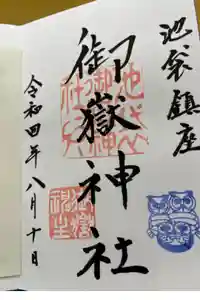 池袋鎮座
御嶽神社
令和四年八月十日